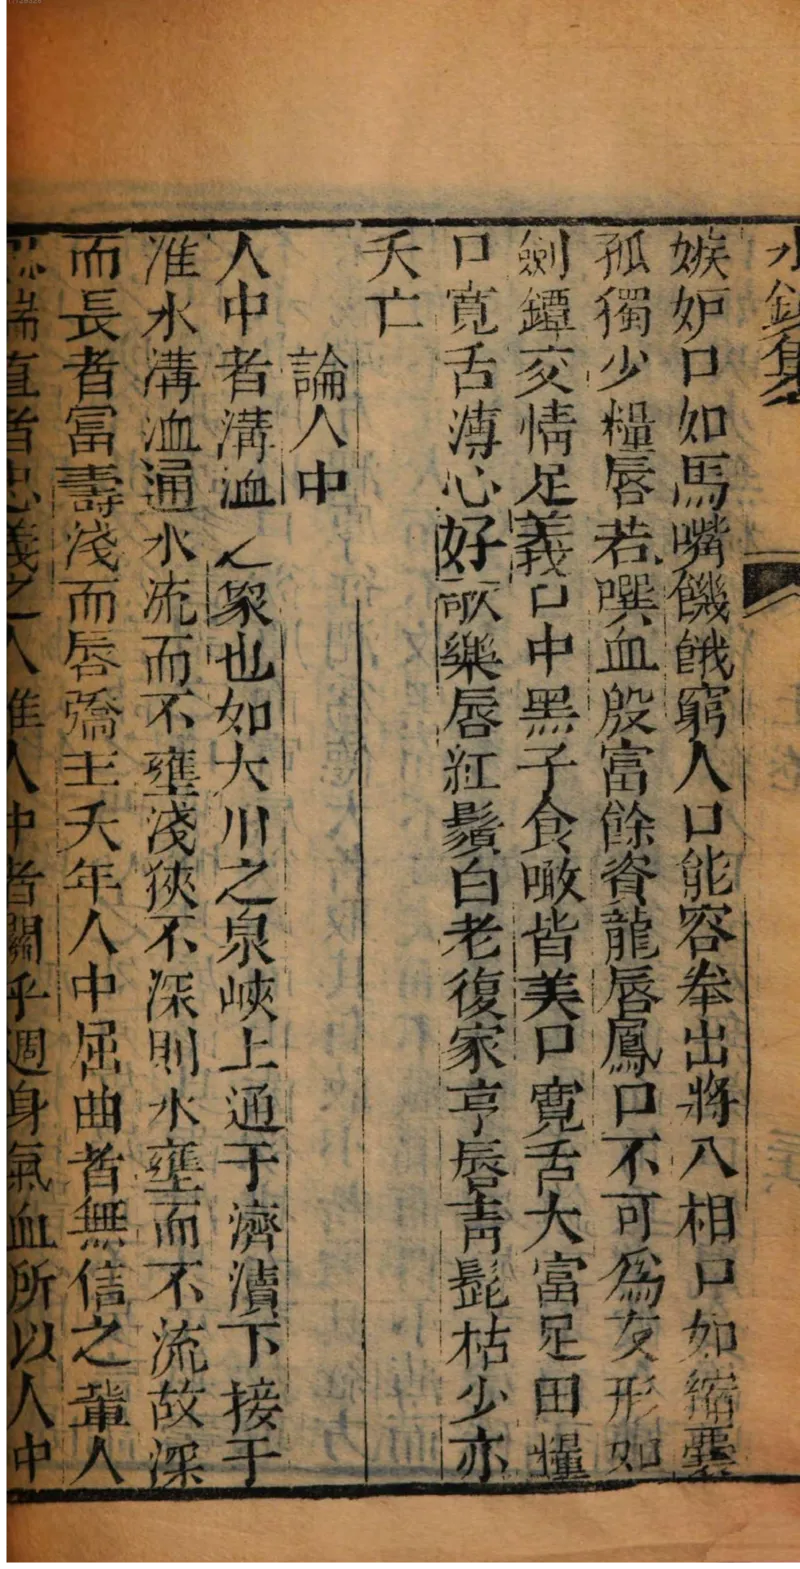 水鏡集
嫉妒口如馬嘴饑餓窮人口能容拳出將入相口如縮囊
孤獨少糧唇若噀血殷富餘資龍唇鳳口不可為友形如
劍鐔交情足義口中黑子食噉皆美口寬舌大富足田糧
口寬舌薄心好歌樂唇紅鬚白老復家亨唇青髭枯少亦
夭亡
論人中
人中者溝洫之象也如大川之泉峽上通于濟瀆下接于
淮水溝洫通水流而不壅淺狹不深則水壅而不流故深
而長者富壽淺而唇喬主夭年人中屈曲者無信之輩人
端直者忠義之人惟人中者關乎週身氣血所以人中